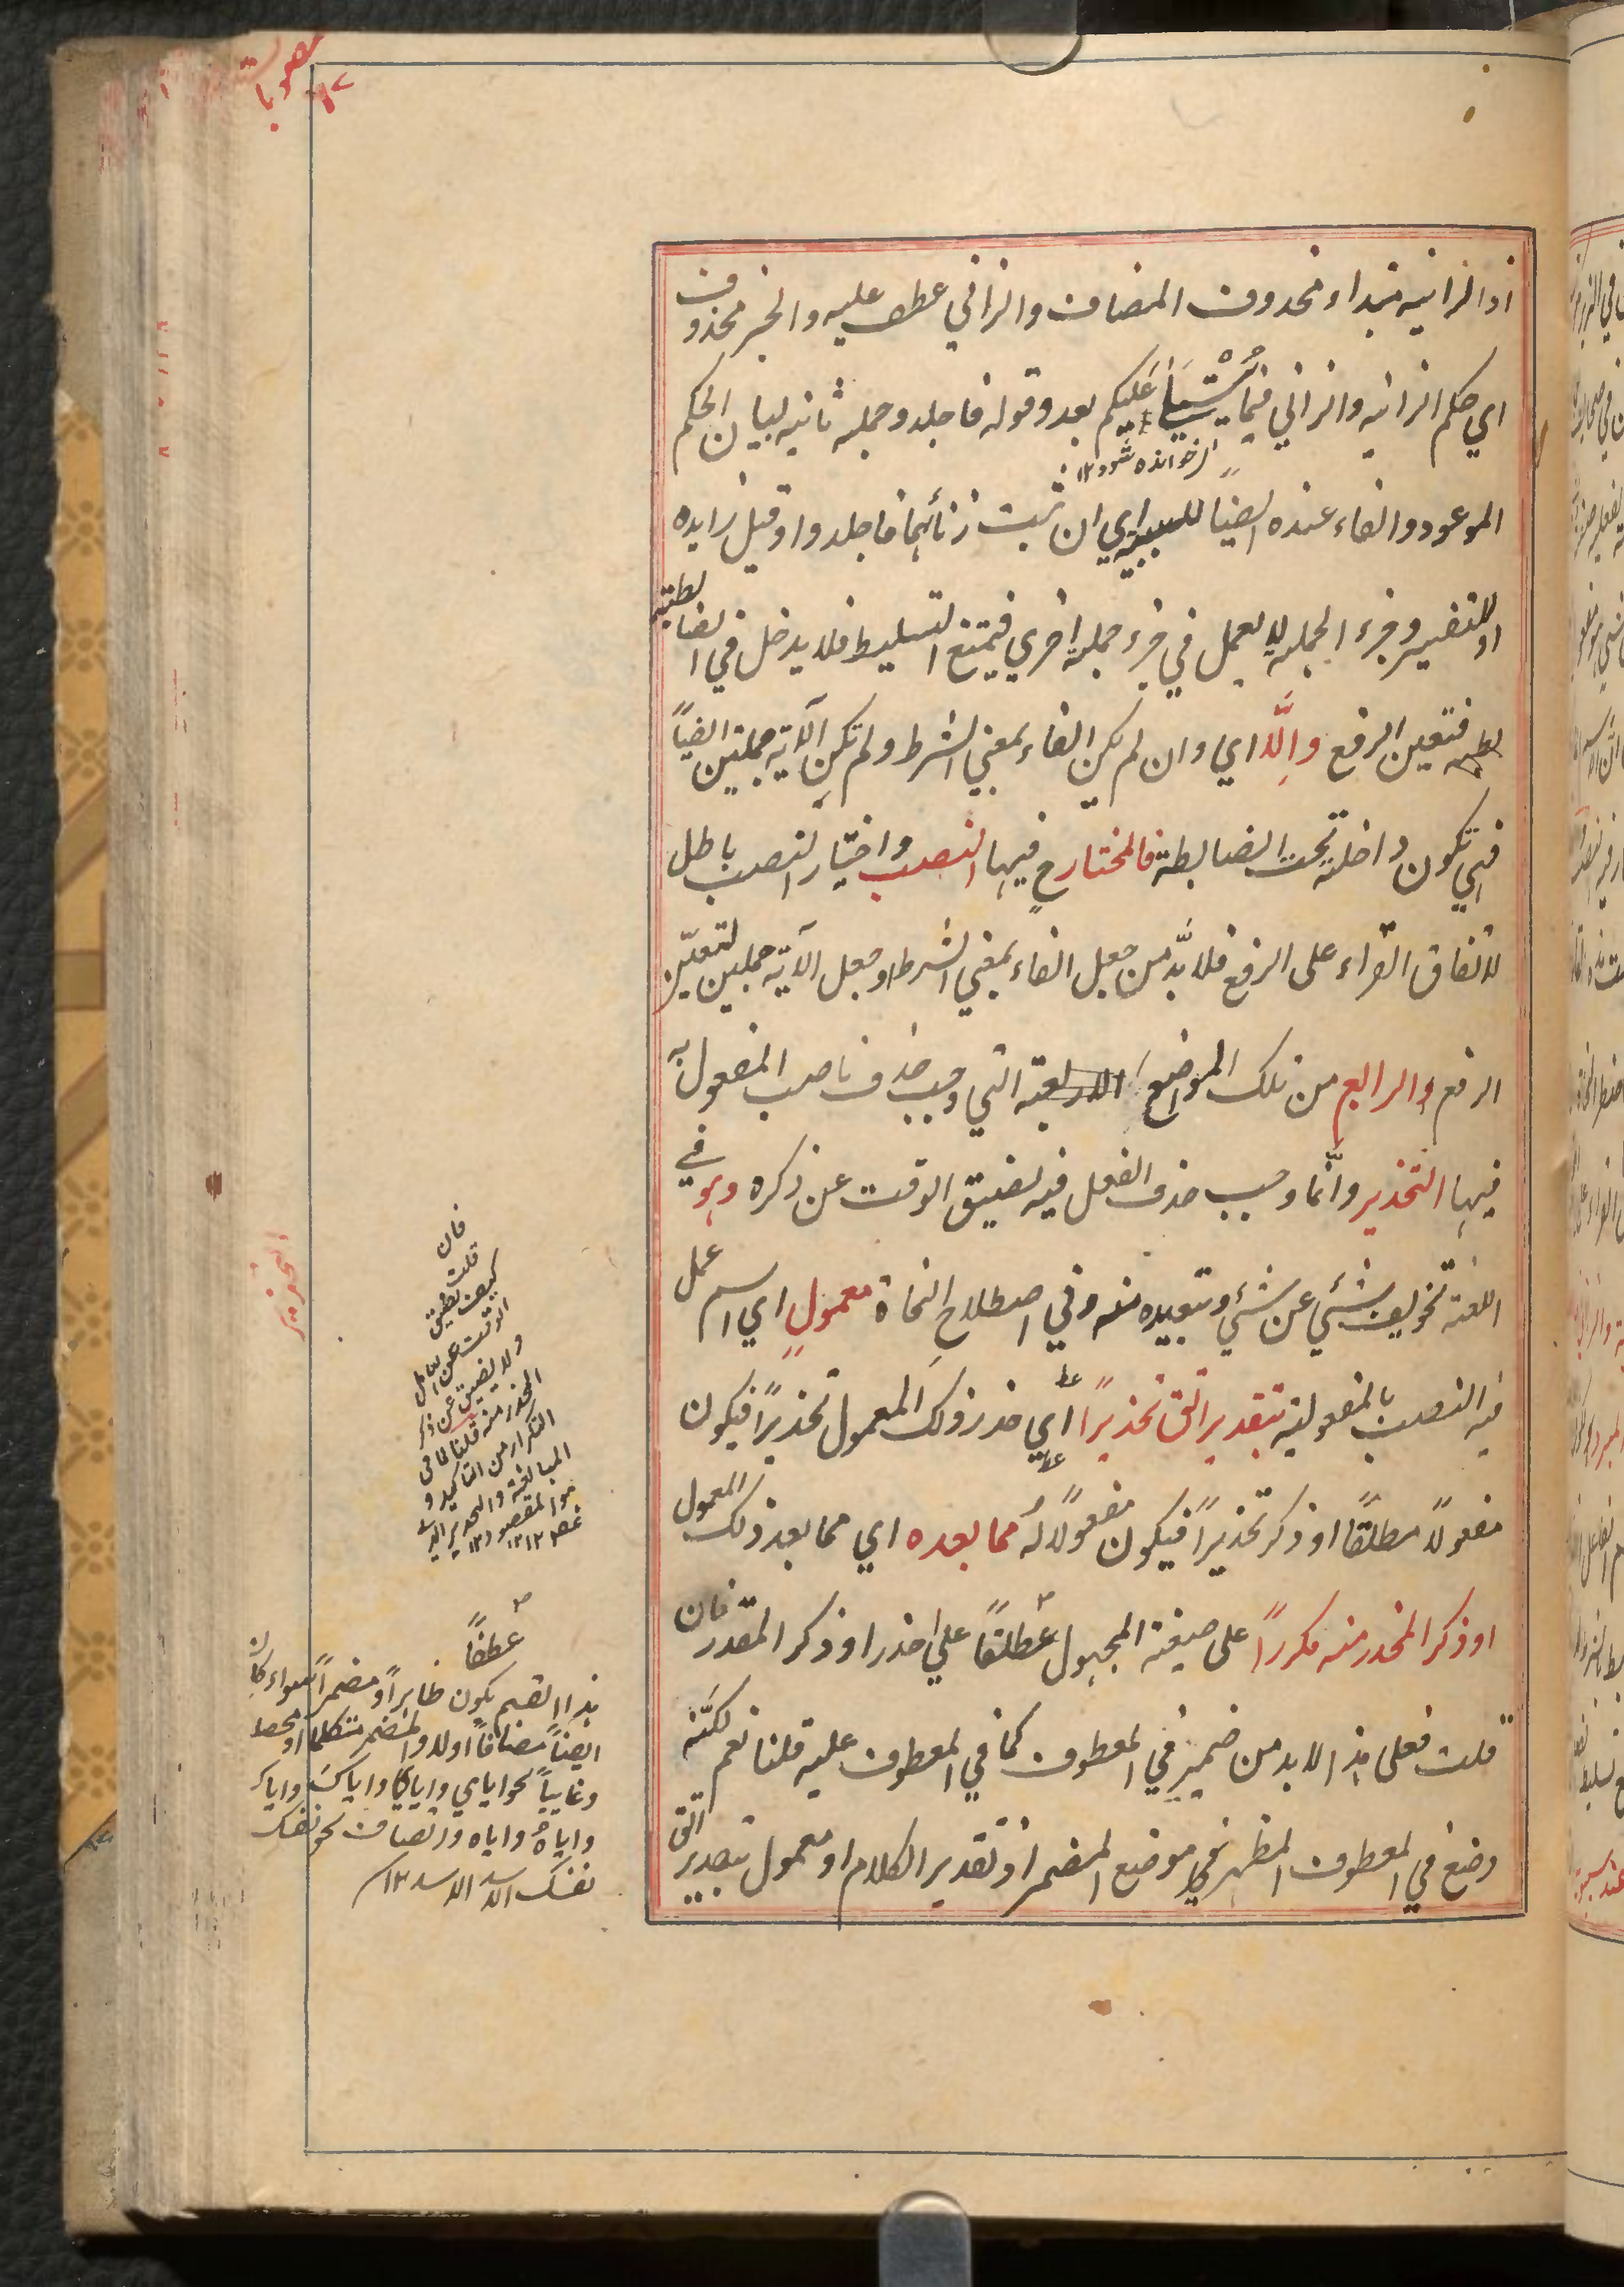 اذ الزانيه مبتداء ومحذوف المضاف والزاني عطف عليه والخبر محذوف
اي حكم الزانيه والزاني فيما سيتلى عليكم بعد وقوله فاجلدوا جملة ثانيه لبيان الحكم
خوانده شود ١٢
الموعود والفاء عنده ايضاً للسببية اي ان ثبت زنائهما فاجلدوا وقيل زايده
او للتفسير وجزء الجملة لا يعمل في جزء جملة اخرى فيمتنع التسليط فلا يدخل في الضابطة
فتعين الرفع والّا اي وان لم يكن الفاء بمعنى الشرط ولم تكن الآية جملتين ايضاً
فهي تكون داخلة تحت الضابطة فالمختار ح فيها النصب واختيار النصب باطل
لاتفاق القراء على الرفع فلا بدّ من جعل الفاء بمعنى الشرط او جعل الآية جملتين لتعيّن
الرفع والرابع من تلك المواضع الاربعة التي وجب حذف ناصب المفعول به
فيها التحذير وانّما وجب حذف الفعل فيه لضيق الوقت عن ذكره وهو في
اللغة تخويف شئي عن شئي وتبعيده منه وفي اصطلاح النحاة معمول اي اسم عمل
فيه النصب بالمفعولية بتقدير اتق تحذيراً اي حذر ذلك المعمول تحذيراً فيكون
مفعولاً مطلقاً او ذكر تحذيراً فيكون مفعولاً له مما بعده اي مما بعد ذلك المعمول
او ذكر المحذر منه مكرراً على صيغة المجهول عطفاً على حذر او ذكر المقدر فان
قلت فعلى هذا لا بد من ضمير في المعطوف كما في المعطوف عليه قلنا نعم لكنّه
وضع في المعطوف المظهر في موضع المضمر اذ تقدير الكلام او معمول بتقدير اتق
التحذير
فان
قلت
كيف يضيق
الوقت عن العامل
ولا يضيق عن ذكر
المحذر منه قلنا لما في
التكرار من التاكيد و
المبالغة والتحذير الذي
هو المقصود ١٢
عطفاً
هذا القسم يكون ظاهراً ومضمراً سواء كان
ايضاً مضافاً اولا والمضمر متكلما او مخاطبا
وغايباً نحو اياي واياي واياك واياك
واياه واياه والمضاف نحو نفسك
نفسك الاسد الاسد ١٢